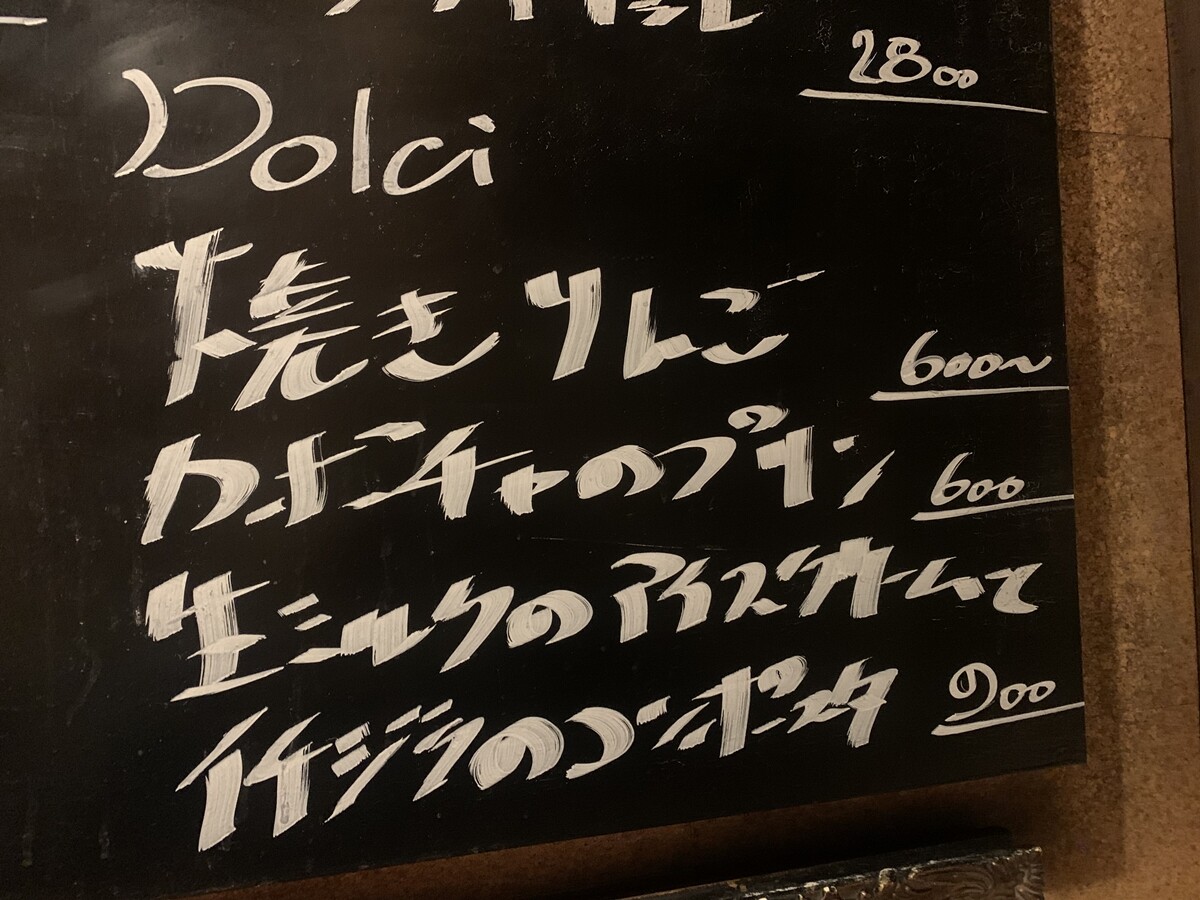 2800
Dolci
焼きりんご 600~
カボチャのプリン 600
生ミルクのアイスクリームと
イチジクのコンポスタ 900